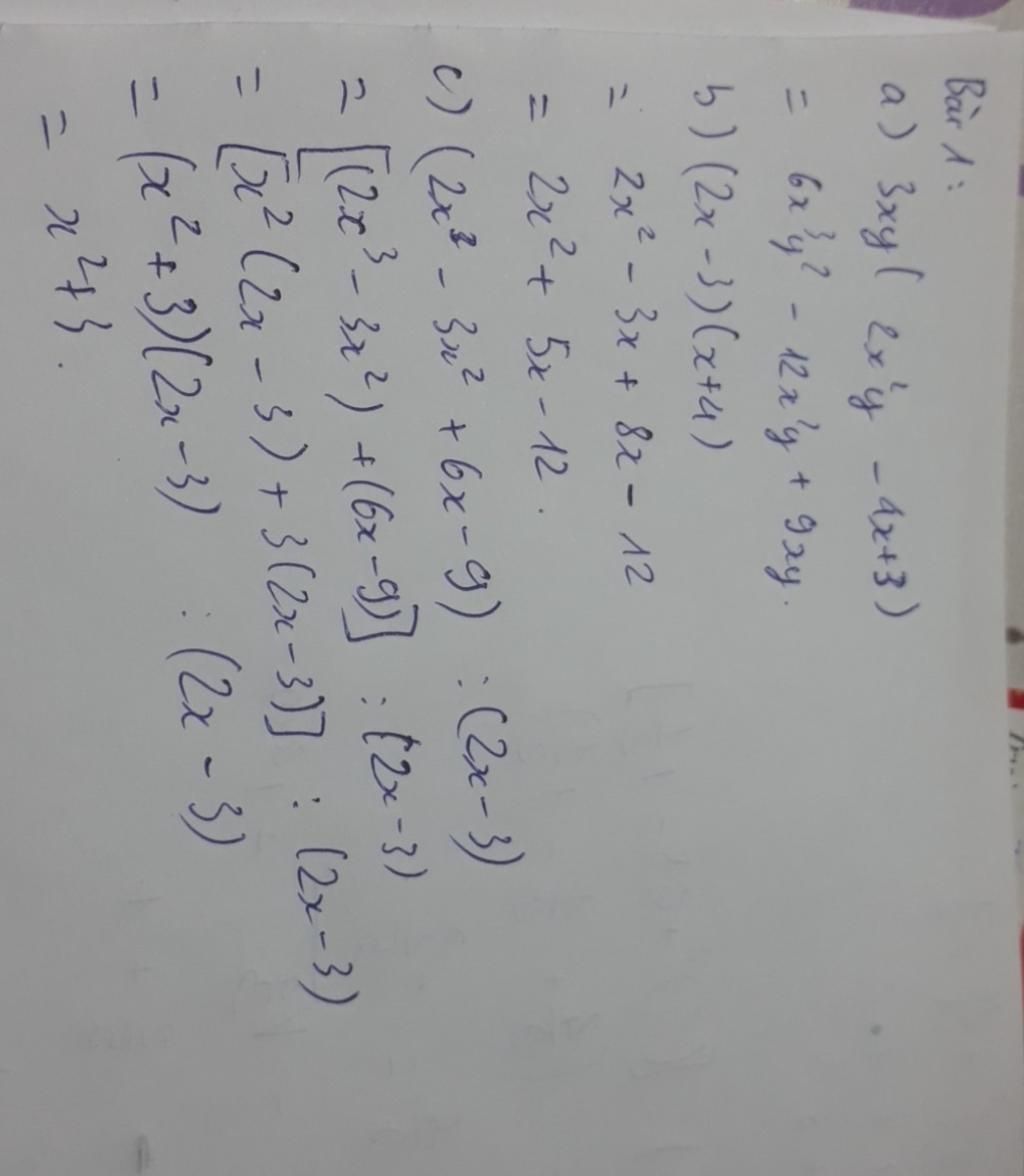 Bài 1:
a) 3xy(2x²y - 4x+3)
= 6x³y² - 12x²y + 9xy.
b) (2x-3)(x+4)
= 2x² - 3x + 8x - 12
= 2x² + 5x - 12.
c) (2x³ - 3x² + 6x - 9) : (2x-3)
= [(2x³ - 3x²) + (6x-9)] : (2x-3)
= [x²(2x-3) + 3(2x-3)] : (2x-3)
= (x²+3)(2x-3) : (2x-3)
= x²+3.